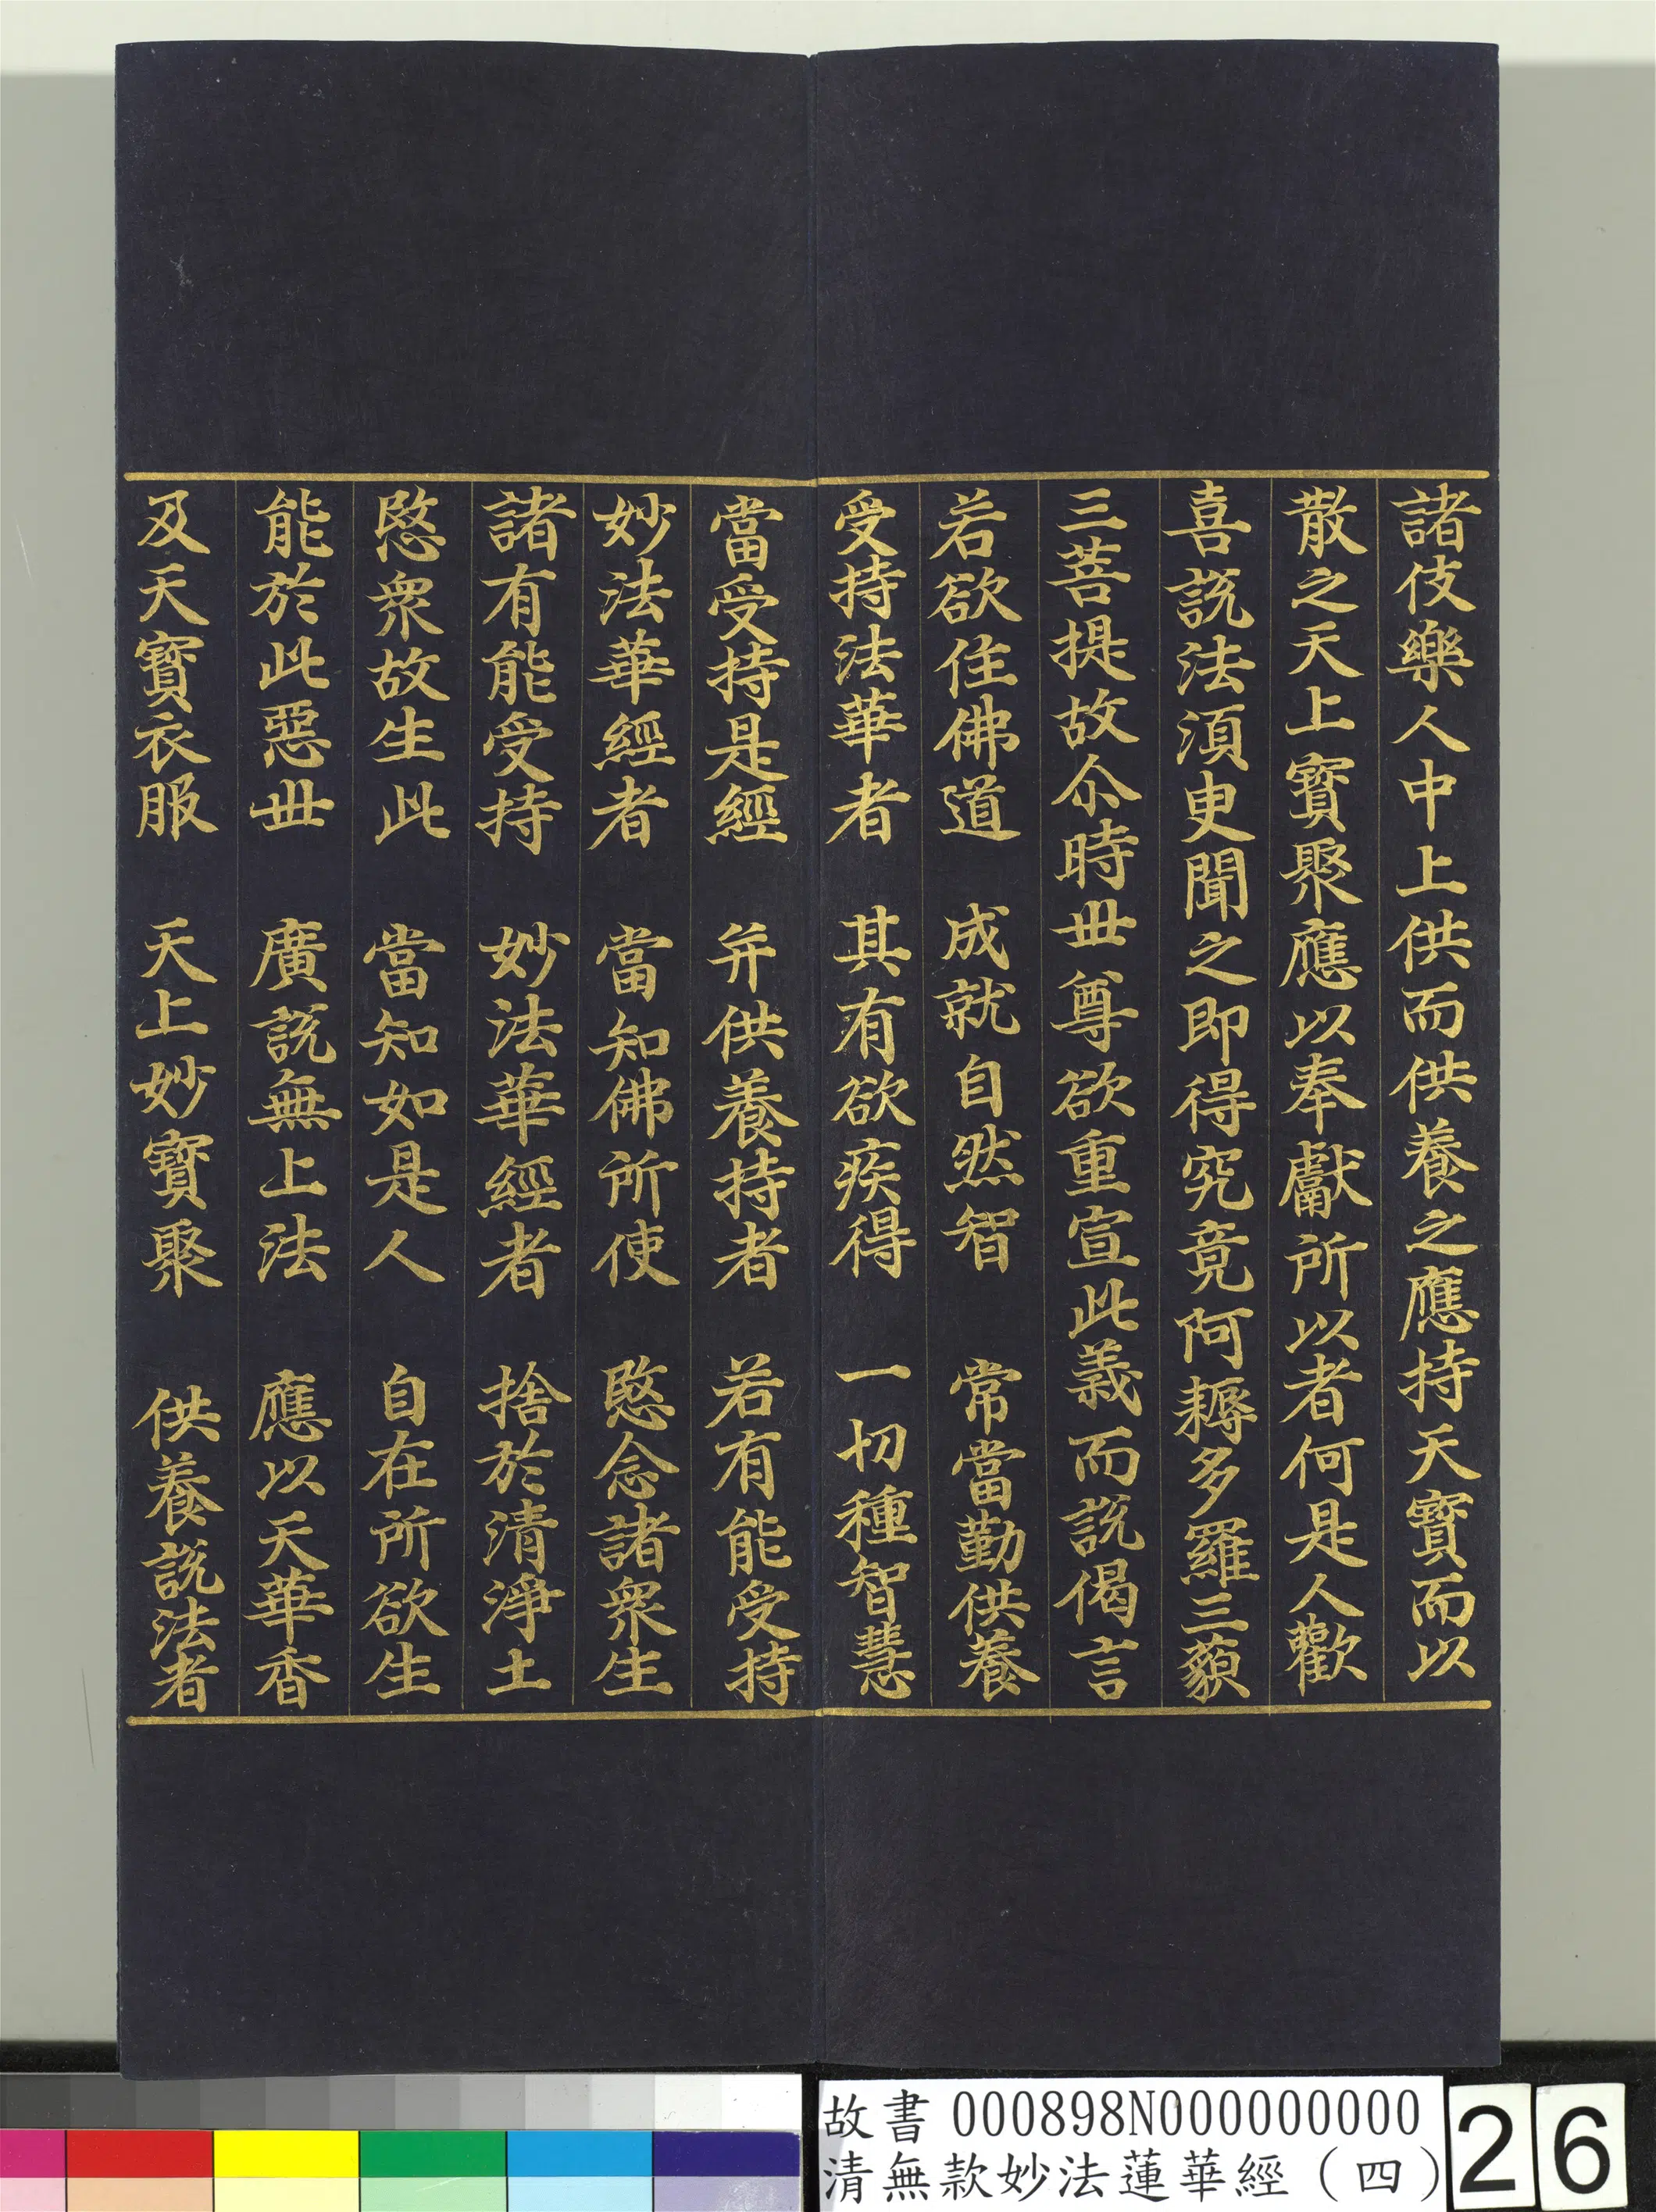 諸伎樂人中上供而供養之應持天寶而以
散之天上寶聚應以奉獻所以者何是人歡
喜說法須臾聞之即得究竟阿耨多羅三藐
三菩提故尒時丗尊欲重宣此義而說偈言
若欲住佛道　成就自然智　常當勤供養
受持法華者　其有欲疾得　一切種智慧
當受持是經　并供養持者　若有能受持
妙法華經者　當知佛所使　愍念諸眾生
諸有能受持　妙法華經者　捨於清淨土
愍眾故生此　當知如是人　自在所欲生
能於此惡丗　廣說無上法　應以天華香
及天寶衣服　天上妙寶聚　供養說法者
故書 000898N000000000
清無款妙法蓮華經（四）
26